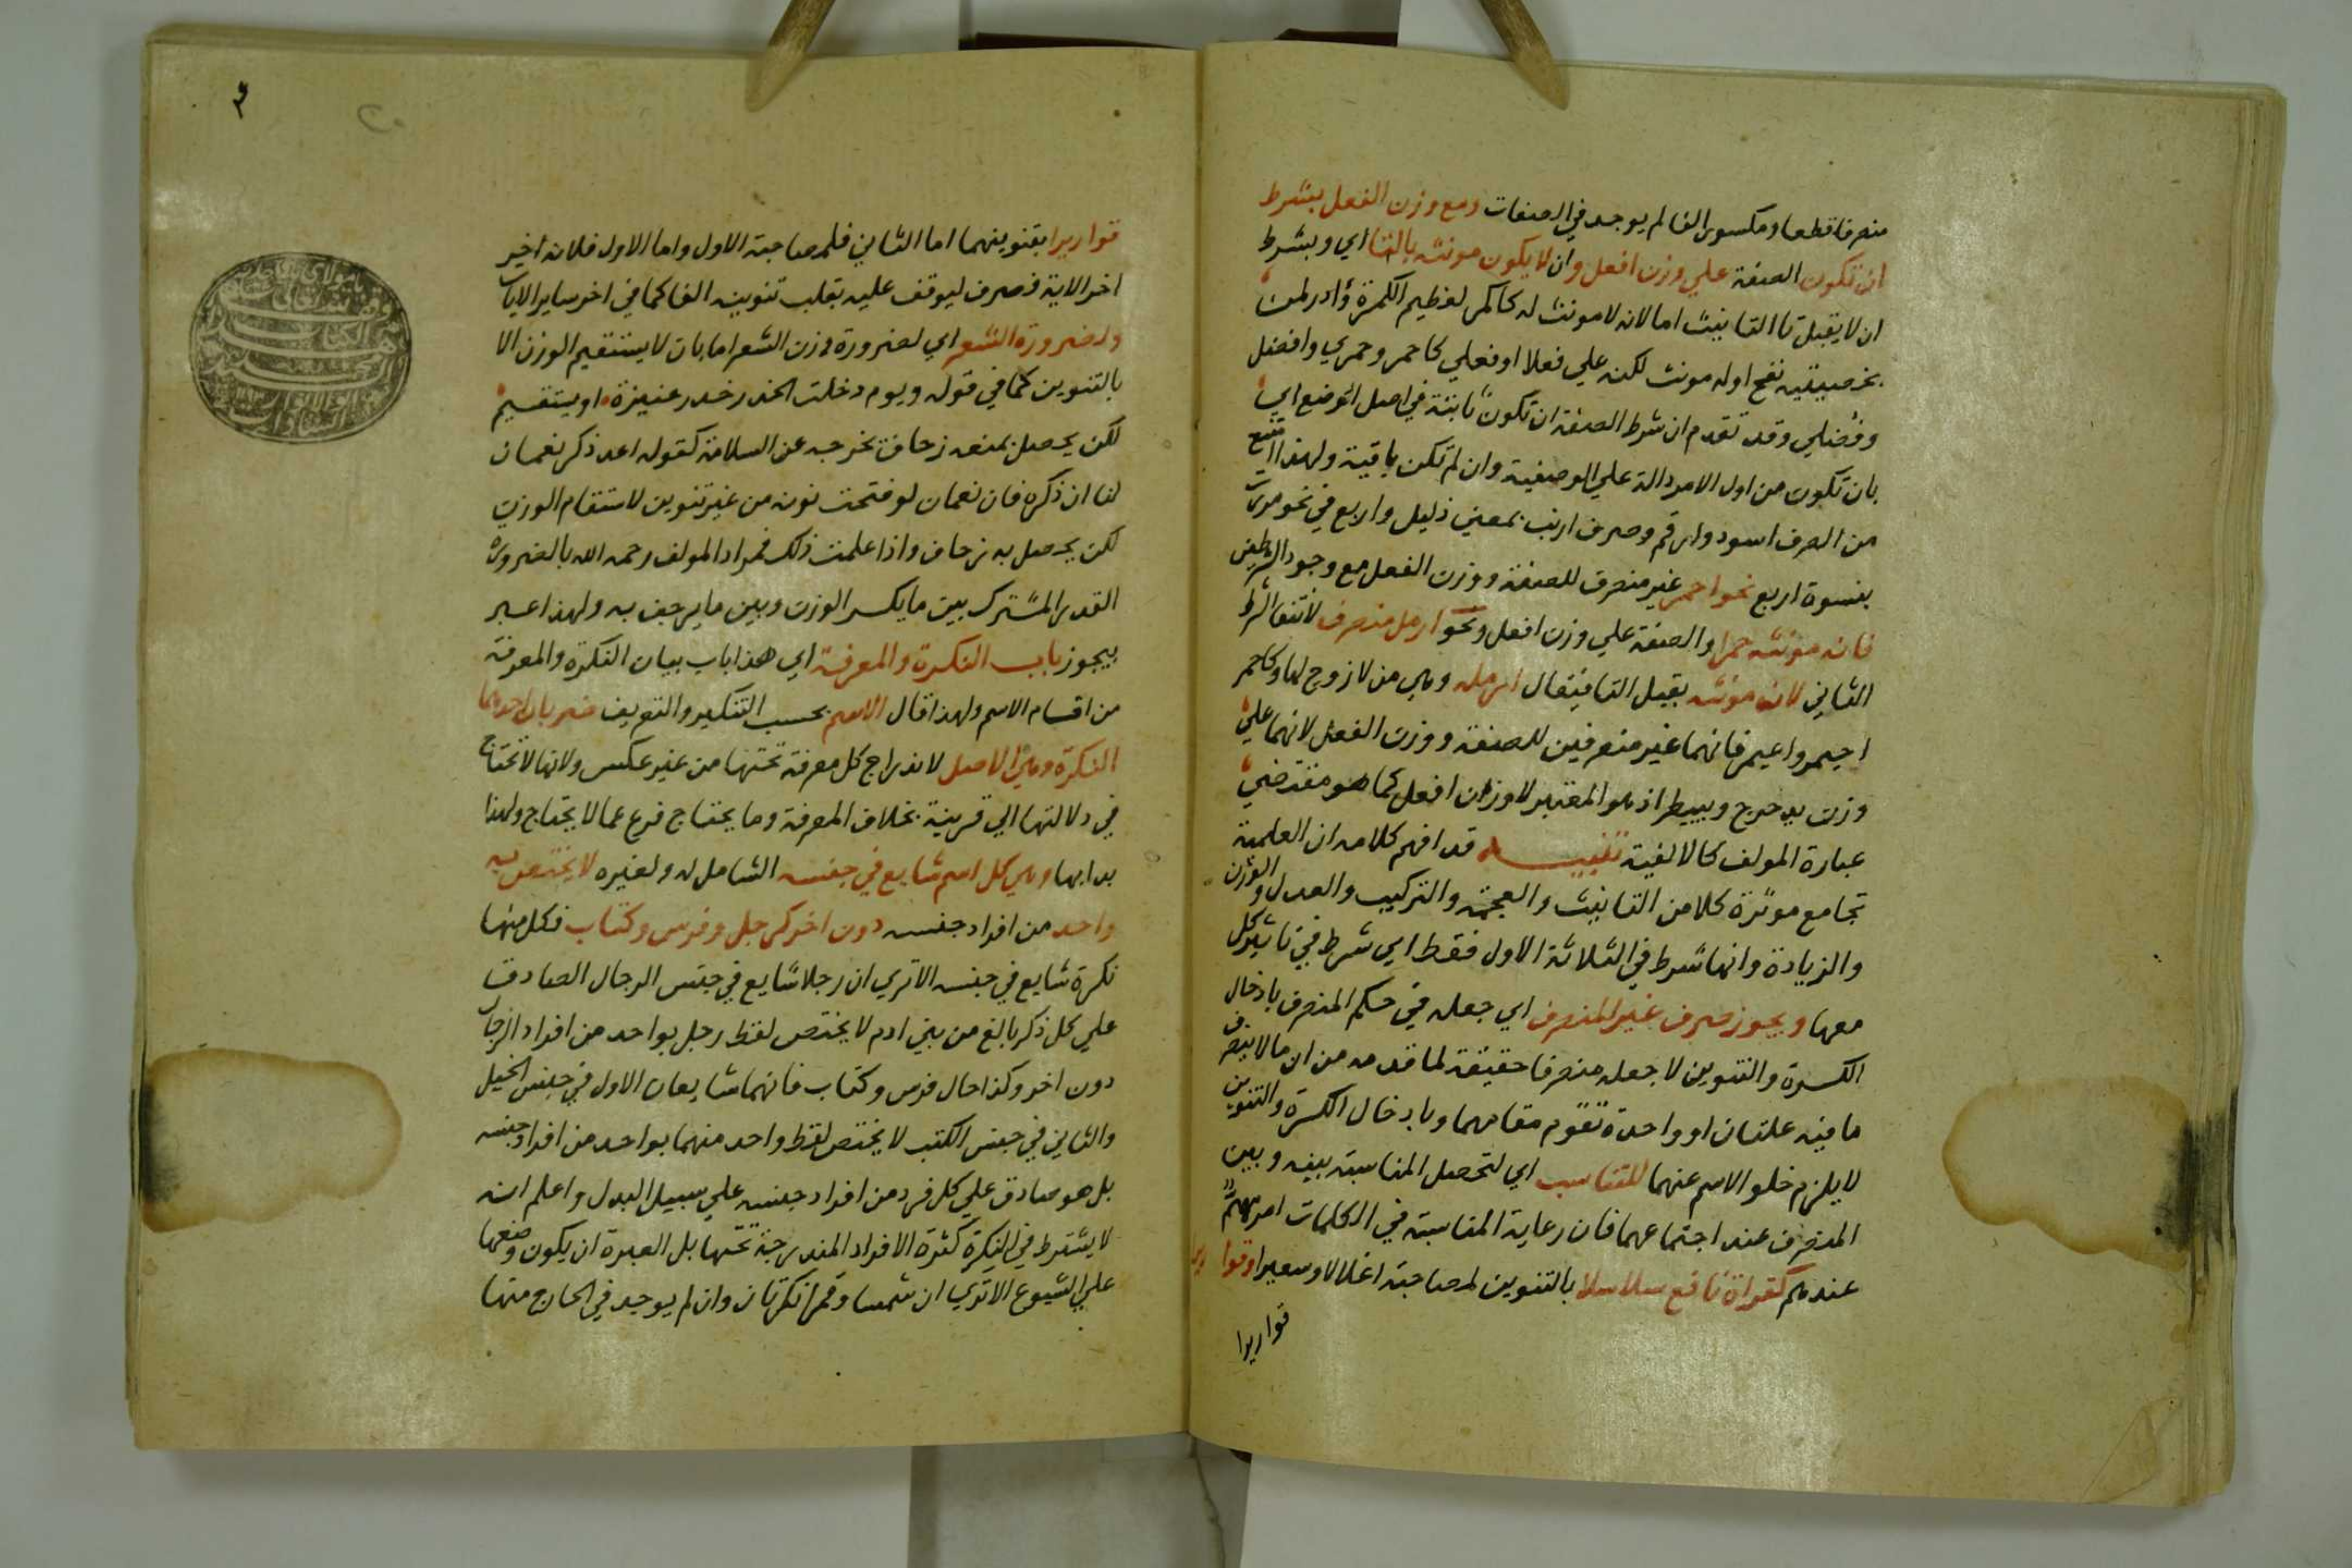 منصرفا قطعا ومكسور الفا لم يوجد في الصفات ومع وزن الفعل بشرط
ان تكون الصفة علي وزن افعل وان لا يكون مونثه بالتا اي وبشرط
ان لا يقبل تا التانيث اما لانه لا مونث له كاكمر لعظيم الكمرة وادر لمن
بخصييتيه نفخ اوله مونث لكنه علي فعلا او فعلي كاحمر وحمري وافضل
وفضلي وقد تقدم ان شرط الصفة ان تكون ثابتة في اصل الوضع اي
بان تكون من اول الامر دالة علي الوصفية وان لم تكن باقية ولهذا امتنع
من الصرف اسود وارقم وصرف ارنب بمعني ذليل واربع في نحو مررت
بنسوة اربع نحو احمر غير منصرف للصفة ووزن الفعل مع وجود الشرطين
فان مونثه حمرا والصفة علي وزن افعل ونحو ارمل منصرف لانتفا الشرط
الثاني لان مونثه يقبل التا فيقال ارمله وهي من لا زوج لها وكاحمر
احيمر واعيمر فانهما غير منصرفين للصفة ووزن الفعل لانهما علي
وزن يدحرج ويبيطر اذ هو المعتبر لا وزن افعل كما هو مقتضي
عبارة المولف كالالفية تنبيه قد افهم كلامه ان العلمية
تجامع موثرة كلا من التانيث والعجمة والتركيب والعدل والوزن
والزيادة وانها شرط في الثلاثة الاول فقط اي شرط في تاثير كل
معها ويجوز صرف غير المنصرف اي جعله في حكم المنصرف بادخال
الكسرة والتنوين لا جعله منصرفا حقيقة لما قدمه من ان ما لا ينصرف
ما فيه علتان او واحدة تقوم مقامهما وبادخال الكسرة والتنوين
لا يلزم خلو الاسم عنهما للتناسب اي لتحصل المناسبة بينه وبين
المنصرف عند اجتماعهما فان رعاية المناسبة في الكلمات امر مهم
عندهم كقراة نافع سلاسلا بالتنوين لمصاحبة اغلالا وسعيرا وقوا
قواريرا
قواريرا بتنوينهما اما الثاني فلمصاحبة الاول واما الاول فلانه اخير
اخر الاية فصرف ليوقف عليه بقلب تنوينه الفا كما في اخر ساير الايات
ولضرورة الشعر اي لضرورة وزن الشعر اما بان لا يستقيم الوزن الا
بالتنوين كما في قوله ويوم دخلت الخدر خدر عنيزة او يستقيم
لكن يحصل بمنعه زحاف يخرجه عن السلامة كقوله اعد ذكر نعمان
لنا ان ذكره فان نعمان لو فتحت نونه من غير تنوين لاستقام الوزن
لكن يحصل به زحاف واذا علمت ذلك فمراد المولف رحمه الله بالضرورة
القدر المشترك بين ما يكسر الوزن وبين ما يرجف به ولهذا عبر
بيجوز باب النكرة والمعرفة اي هذا باب بيان النكرة والمعرفة
من اقسام الاسم ولهذا قال الاسم بحسب التنكير والتعريف ضربان احدهما
النكرة وهي الاصل لاندراج كل معرفة تحتها من غير عكس ولانها لا تحتاج
في دلالتها الي قرينة بخلاف المعرفة وما يحتاج فرع عما لا يحتاج ولهذا
بدا بها وهي كل اسم شايع في جنسه الشامل له ولغيره لا يختص به
واحد من افراد جنسه دون اخر كرجل وفرس وكتاب فكل منها
نكرة شايع في جنسه الا تري ان رجلا شايع في جنس الرجال الصادق
علي كل ذكر بالغ من بني ادم لا يختص لفظ رجل بواحد من افراد الرجال
دون اخر وكذا حال فرس وكتاب فانهما شايعان الاول في جنس الخيل
والثاني في جنس الكتب لا يختص لفظ واحد منهما بواحد من افراد جنسه
بل هو صادق علي كل فرد من افراد جنسه علي سبيل البدل واعلم انه
لا يشترط في النكرة كثرة الافراد المندرجة تحتها بل العبرة ان يكون وضعها
علي الشيوع الا تري ان شمسا وقمرا نكرتان وان لم يوجد في الخارج منها